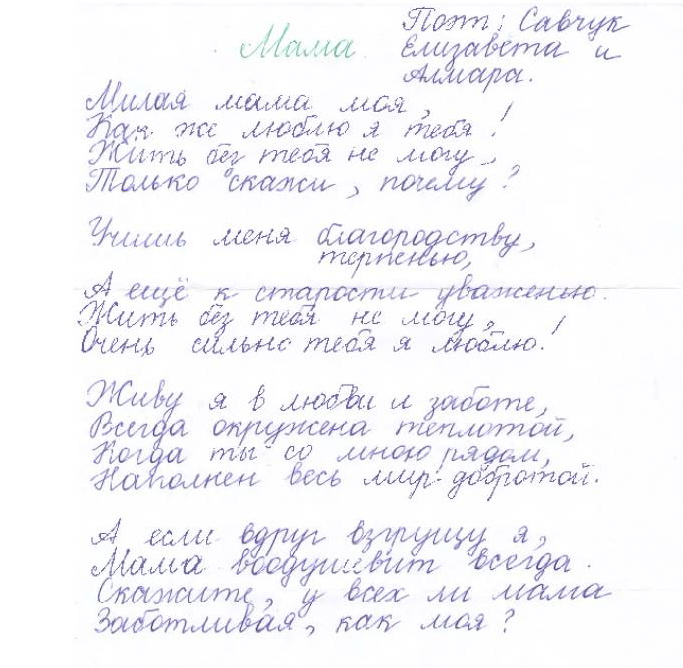 Поэт: Савчук
Мама. Елизавета и
Алмара.
Милая мама моя,
Как же люблю я тебя!
Жить без тебя не могу,
Только скажи, почему?
Учишь меня благородству,
терпенью,
А ещё к старости уваженью.
Жить без тебя не могу,
Очень сильно тебя я люблю!
Живу я в любви и заботе,
Всегда окружена теплотой,
Когда ты со мною рядом,
Наполнен весь мир добротой.
А если вдруг взгрущу я,
Мама воодушевит всегда.
Скажите, у всех ли мама
Заботливая, как моя?